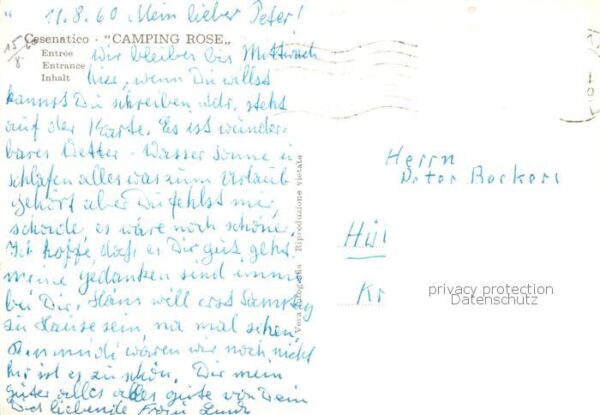 11.8.60 Mein lieber Peter!
Cesenatico - "CAMPING ROSE"
15/8.
Entrée
Entrance
Inhalt
wir bleiben bis Mittwoch
hier, wenn Du willst
kannst Du schreiben Adr. steht
auf der Karte. Es ist wunder-
bares Wetter - Wasser Sonne u
schlafen alles was zum Urlaub
gehört aber Du fehlst mir,
schade, es wäre noch schöner.
Ich hoffe, daß es Dir gut geht,
meine gedanken sind immer
bei Dir. Hans will erst Samstag
zu Hause sein, na mal sehen.
wären wir noch nicht
hier ist es zu schön. Dir mein
guter alles alles gute von Dein
Dich liebende Frau
Vera Fotografia Riproduzione vietata
Herrn
Peter Beckers
Hül
Kr
privacy protection
Datenschutz